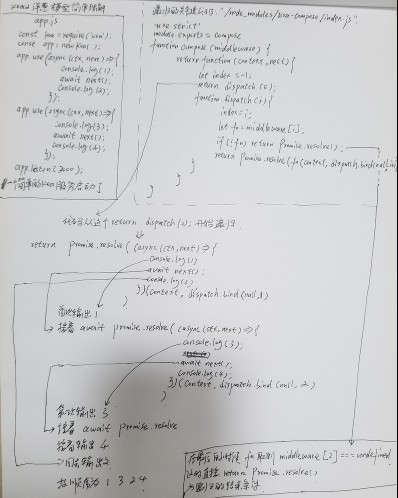 koa 洋葱模型简单
app.js
const koa = require('koa');
const app = new koa();
app.use(async (ctx, next) => {
console.log(1)
await next();
console.log(2)
});
app.use(async (ctx, next) => {
console.log(3);
await next();
console.log(4);
});
app.listen(3000);
一个简单的koa服务启动了
"/node_modules/koa-compose/index.js"
'use strict'
module.exports = compose
function compose (middleware) {
return function (context, next) {
let index = -1;
return dispatch(0);
function dispatch(i) {
index = i;
let fn = middleware[i];
if (!fn) return Promise.resolve();
return Promise.resolve(fn(context, dispatch.bind(null, i+1)
}
}
}
从这个 return dispatch(0); 开始
return promise.resolve( (async (ctx, next) => {
console.log(1)
await next();
console.log(2)
})(context, dispatch.bind(null, 1)
)
输出1
接着 await promise.resolve( (async (ctx, next) => {
console.log(3);
await next();
console.log(4);
})(context, dispatch.bind(null, 2)
)
输出3
接着 await promise.resolve
接着输出4
输出2
1 3 2 4
fn middleware[2] === undefined
return Promise.resolve()